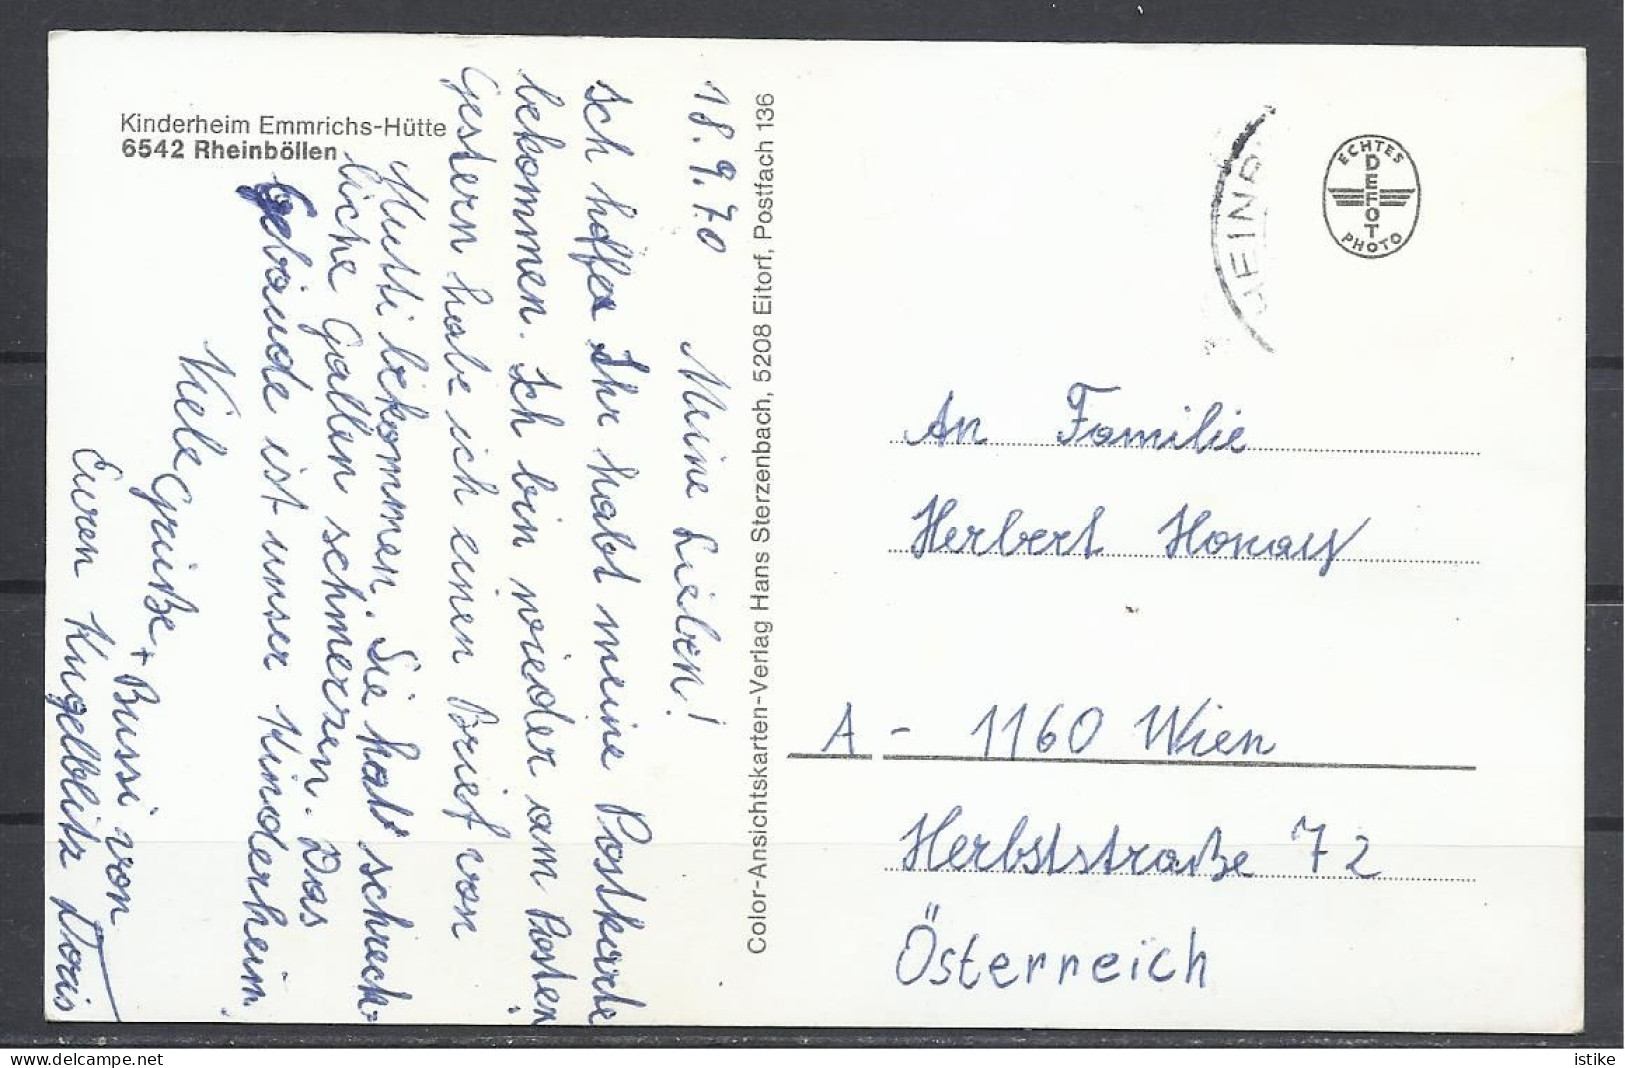 Kinderheim Emmrichs-Hütte
6542 Rheinböllen
18.9.70
Meine Lieben!
Ich hoffe Ihr habt meine Postkarte
bekommen. Ich bin wieder am Posten
Gestern habe ich einen Brief von
Mutti bekommen. Sie hat schreck-
liche Gallen schmerzen. Das
Gebäude ist unser Kinderheim.
Viele Grüße + Bussi von
Euren Kugelblitz Doris
Color-Ansichtskarten-Verlag Hans Sterzenbach, 5208 Eitorf, Postfach 136
ECHTES
DEFOT
PHOTO
An Familie
Herbert
A - 1160 Wien
Herbststraße 72
Österreich
delcampe.net
istike